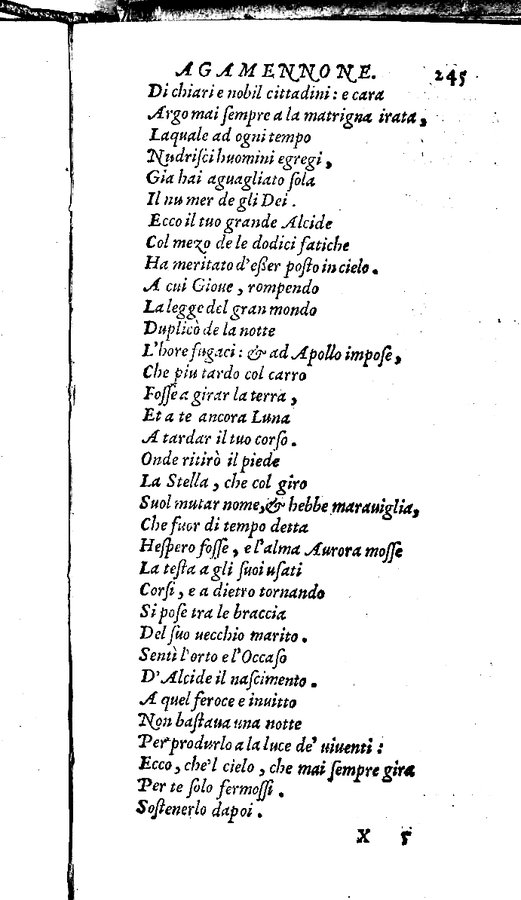 AGAMENNONE. 245
Di chiari e nobil cittadini: e cara
Argo mai ſempre a la matrigna irata,
Laquale ad ogni tempo
Nudriſci huomini egregi,
Gia hai aguagliato ſola
Il nu mer de gli Dei.
Ecco il tuo grande Alcide
Col mezo de le dodici fatiche
Ha meritato d'eßer poſto in cielo.
A cui Gioue, rompendo
La legge del gran mondo
Duplicò de la notte
L'hore fugaci: & ad Apollo impoſe,
Che piu tardo col carro
Foſſe a girar la terra,
Et a te ancora Luna
A tardar il tuo corſo.
Onde ritirò il piede
La Stella, che col giro
Suol mutar nome, & hebbe marauiglia,
Che fuor di tempo detta
Heſpero foſſe, e l'alma Aurora moſſe
La teſta a gli ſuoi uſati
Corſi, e a dietro tornando
Si poſe tra le braccia
Del ſuo uecchio marito.
Sentì l'orto e l'Occaſo
D'Alcide il naſcimento.
A quel feroce e inuitto
Non baſtaua una notte
Per produrlo a la luce de' uiuenti:
Ecco, che'l cielo, che mai ſempre gira
Per te ſolo fermoſſi.
Soſtenerlo dapoi.
X 5